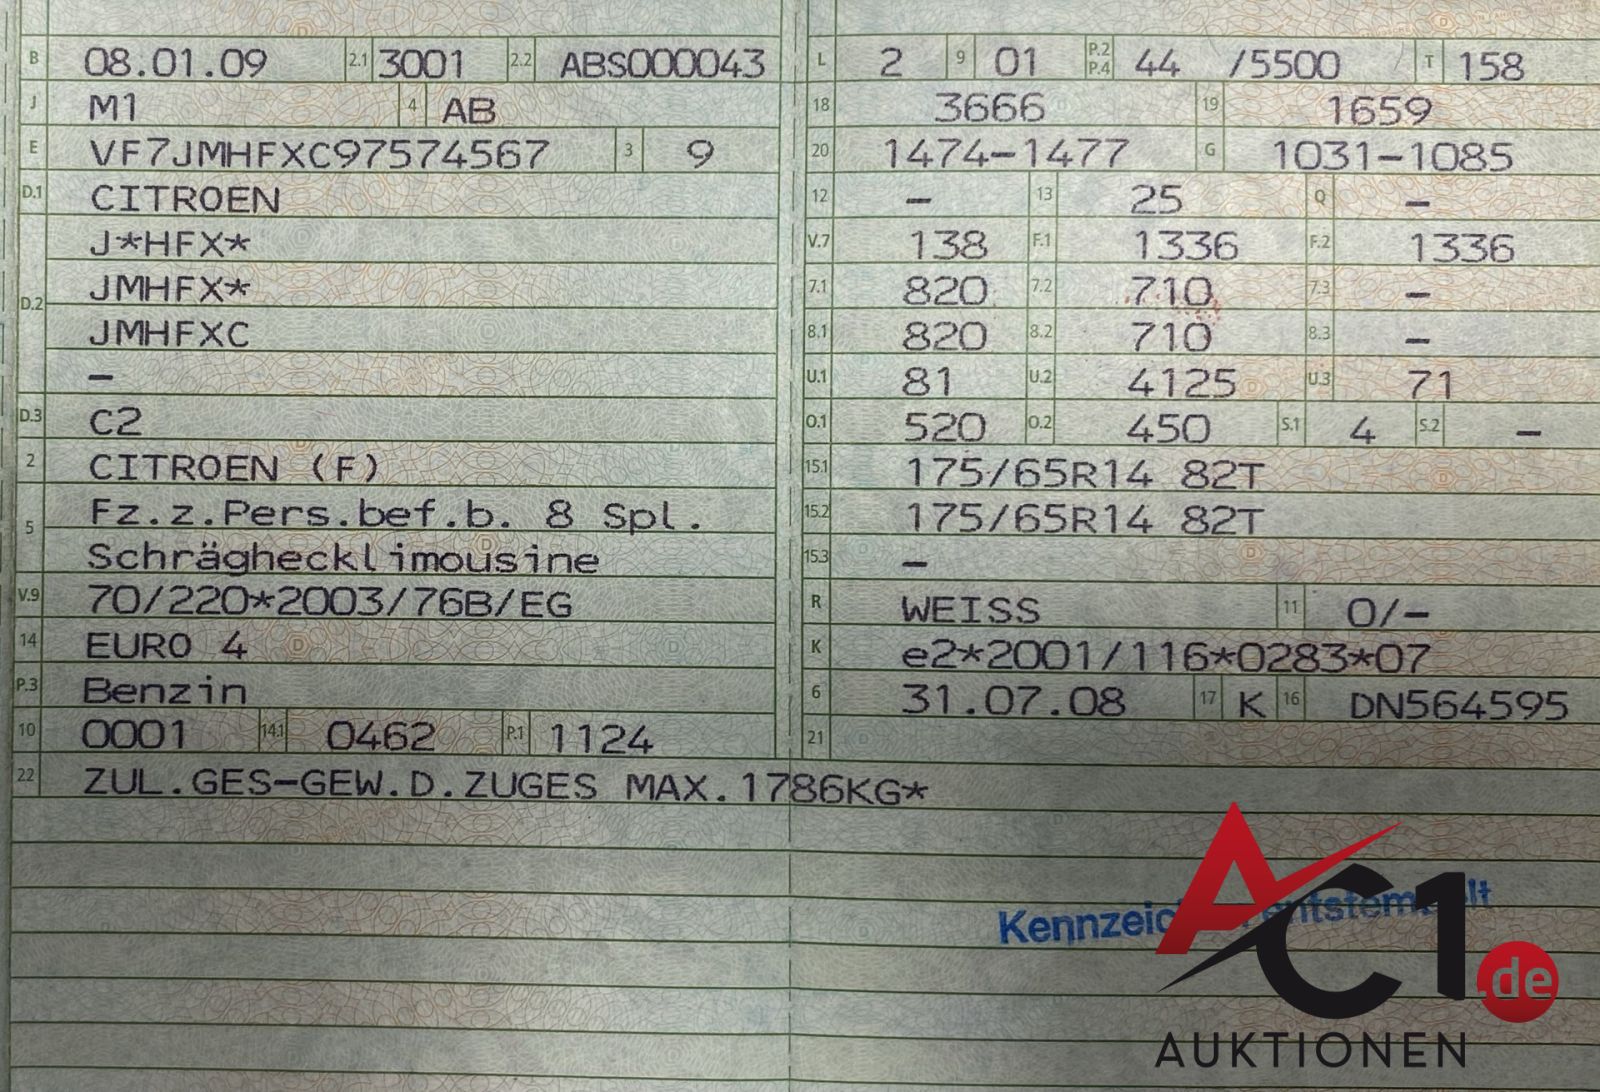 B 08.01.09 2.1 3001 2.2 ABS000043
J M1 4 AB
E VF7JMHFXC97574567 3 9
D.1 CITROEN
J*HFX*
D.2 JMHFX*
JMHFXC
–
D.3 C2
2 CITROEN (F)
5 Fz.z.Pers.bef.b. 8 Spl.
Schräghecklimousine
V.9 70/220*2003/76B/EG
14 EURO 4
P.3 Benzin
10 0001 14.1 0462 P.1 1124
22 ZUL.GES-GEW.D.ZUGES MAX.1786KG*
L 2 9 01 P.2 P.4 44 /5500 T 158
18 3666 19 1659
20 1474-1477 G 1031-1085
12 – 13 25 Q –
V.7 138 F.1 1336 F.2 1336
7.1 820 7.2 710 7.3 –
8.1 820 8.2 710 8.3 –
U.1 81 U.2 4125 U.3 71
O.1 520 O.2 450 S.1 4 S.2 –
15.1 175/65R14 82T
15.2 175/65R14 82T
15.3 –
R WEISS 11 0/–
K e2*2001/116*0283*07
6 31.07.08 17 K 16 DN564595
21
AC1.de
AUKTIONEN